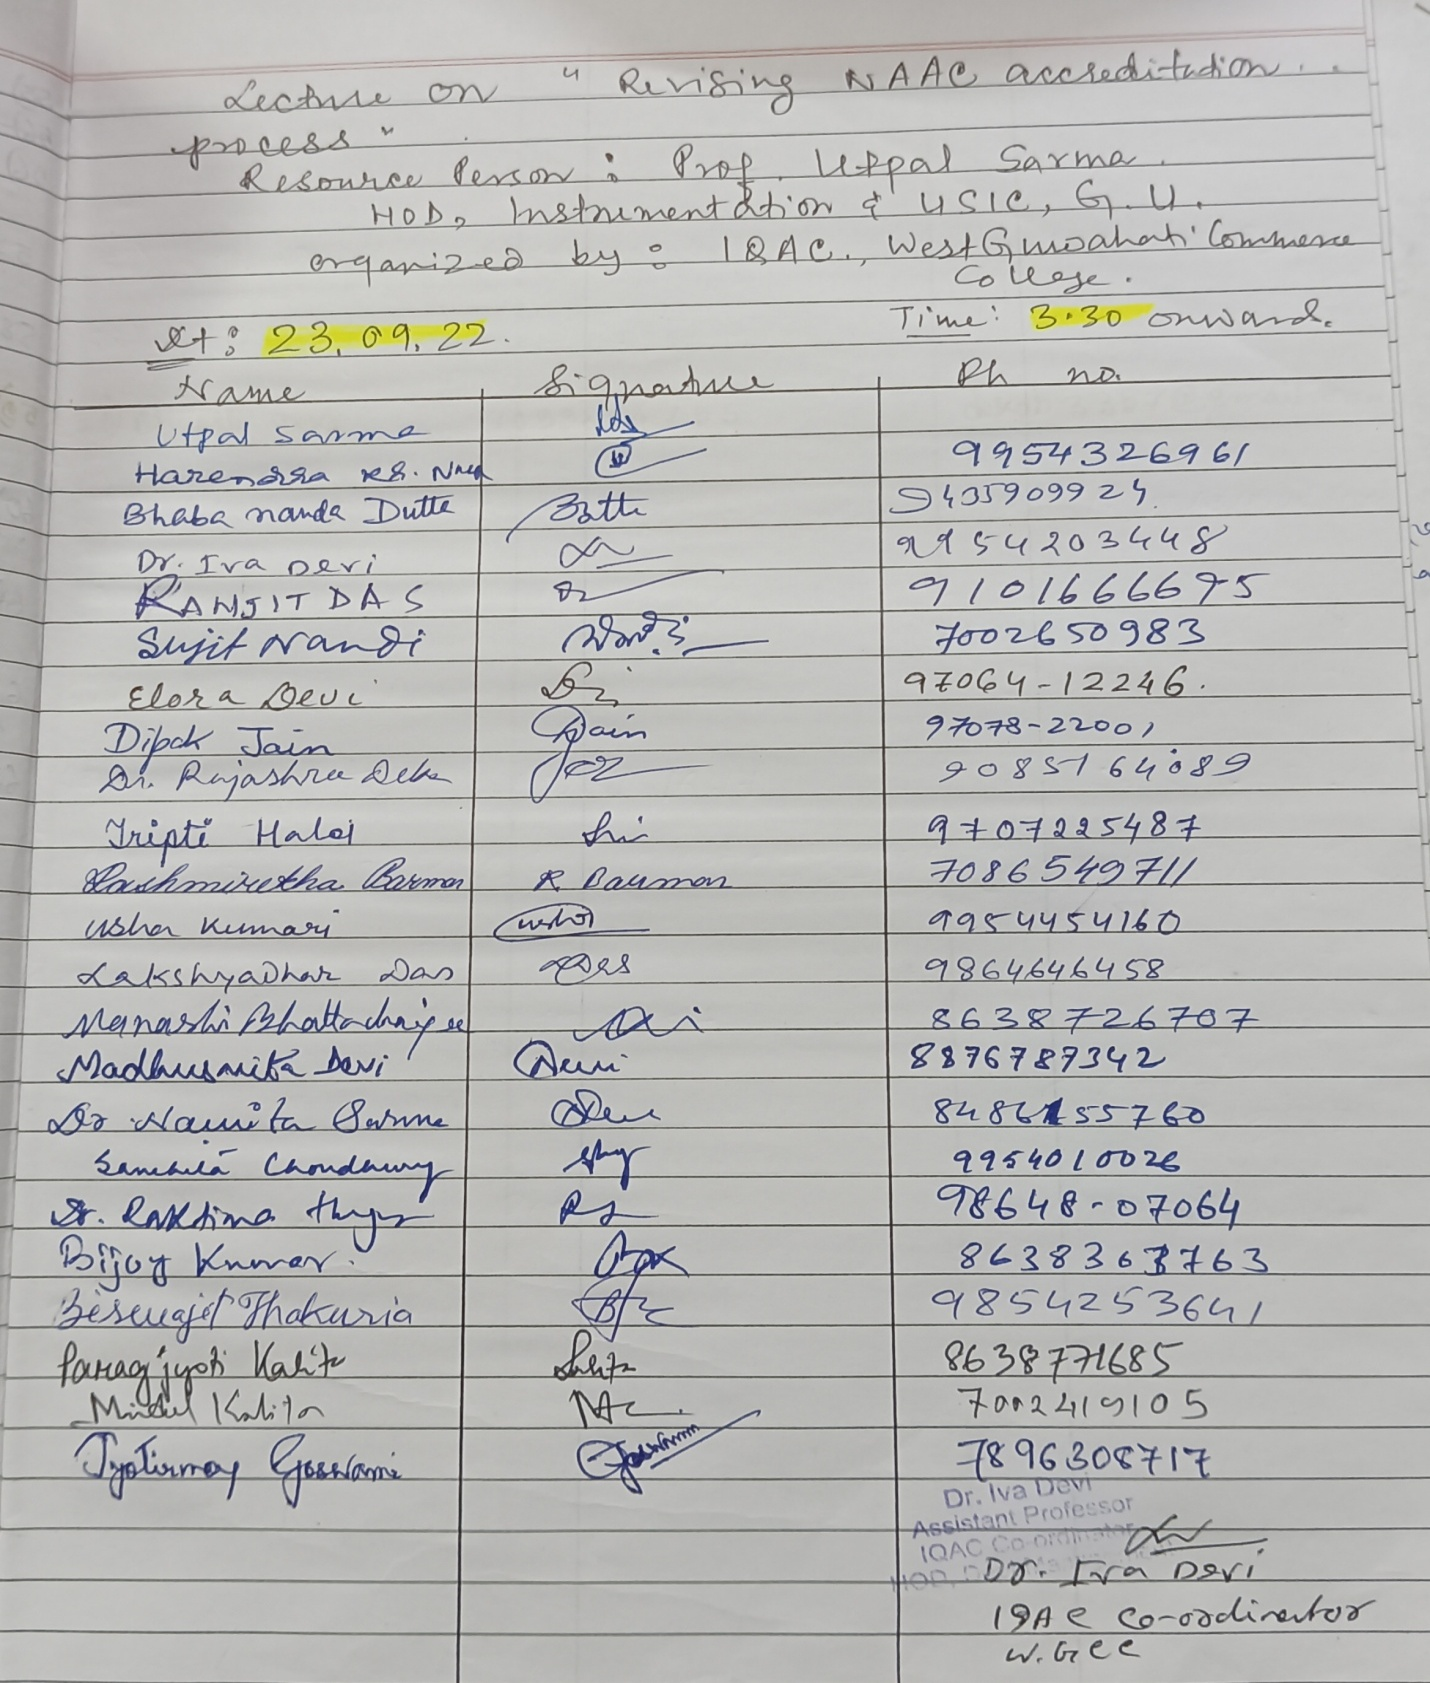 Lecture on "Revising NAAC accreditation
process"
Resource Person: Prof. Utpal Sarma
HOD, Instrumentation & USIC, G.U.
organized by: IQAC., West Guwahati Commerce
College.
Dt: 23.09.22. Time: 3.30 onward.
Name Signature Ph no.
Utpal Sarma
Harendra 9954326961
Bhaba nanda Dutta Dutta 9435909924
Dr. Iva Devi 9954203448
RANJIT DAS 9101666695
Sujit Nandi 7002650983
Elora Devi 97064-12246.
Dipak Jain Jain 97078-22001
Dr. Rajashree Deka 9085164089
Tripti Haloi 9707225487
Rashmirekha Barman R Barman 7086549711
Usha Kumari Usha 9954454160
Lakshyadhar Das Das 9864646458
Manashi Bhattacharjee 8638726707
Madhusmita Devi Devi 8876787342
Dr Namita Sarma 8486155760
Sanchita Choudhury 9954010026
Dr. Raktima 98648-07064
Bijoy Kumar. 8638363763
Biswajit Thakuria 9854253641
Paragjyoti Kalita Kalita 8638771685
Mridul Kalita 7002419105
Jyotirmoy Goswami Goswami 7896308717
Dr. Iva Devi
Assistant Professor
IQAC Co-ordinator
HOD,
Dr. Iva Devi
IQAC Co-ordinator
W.GCC